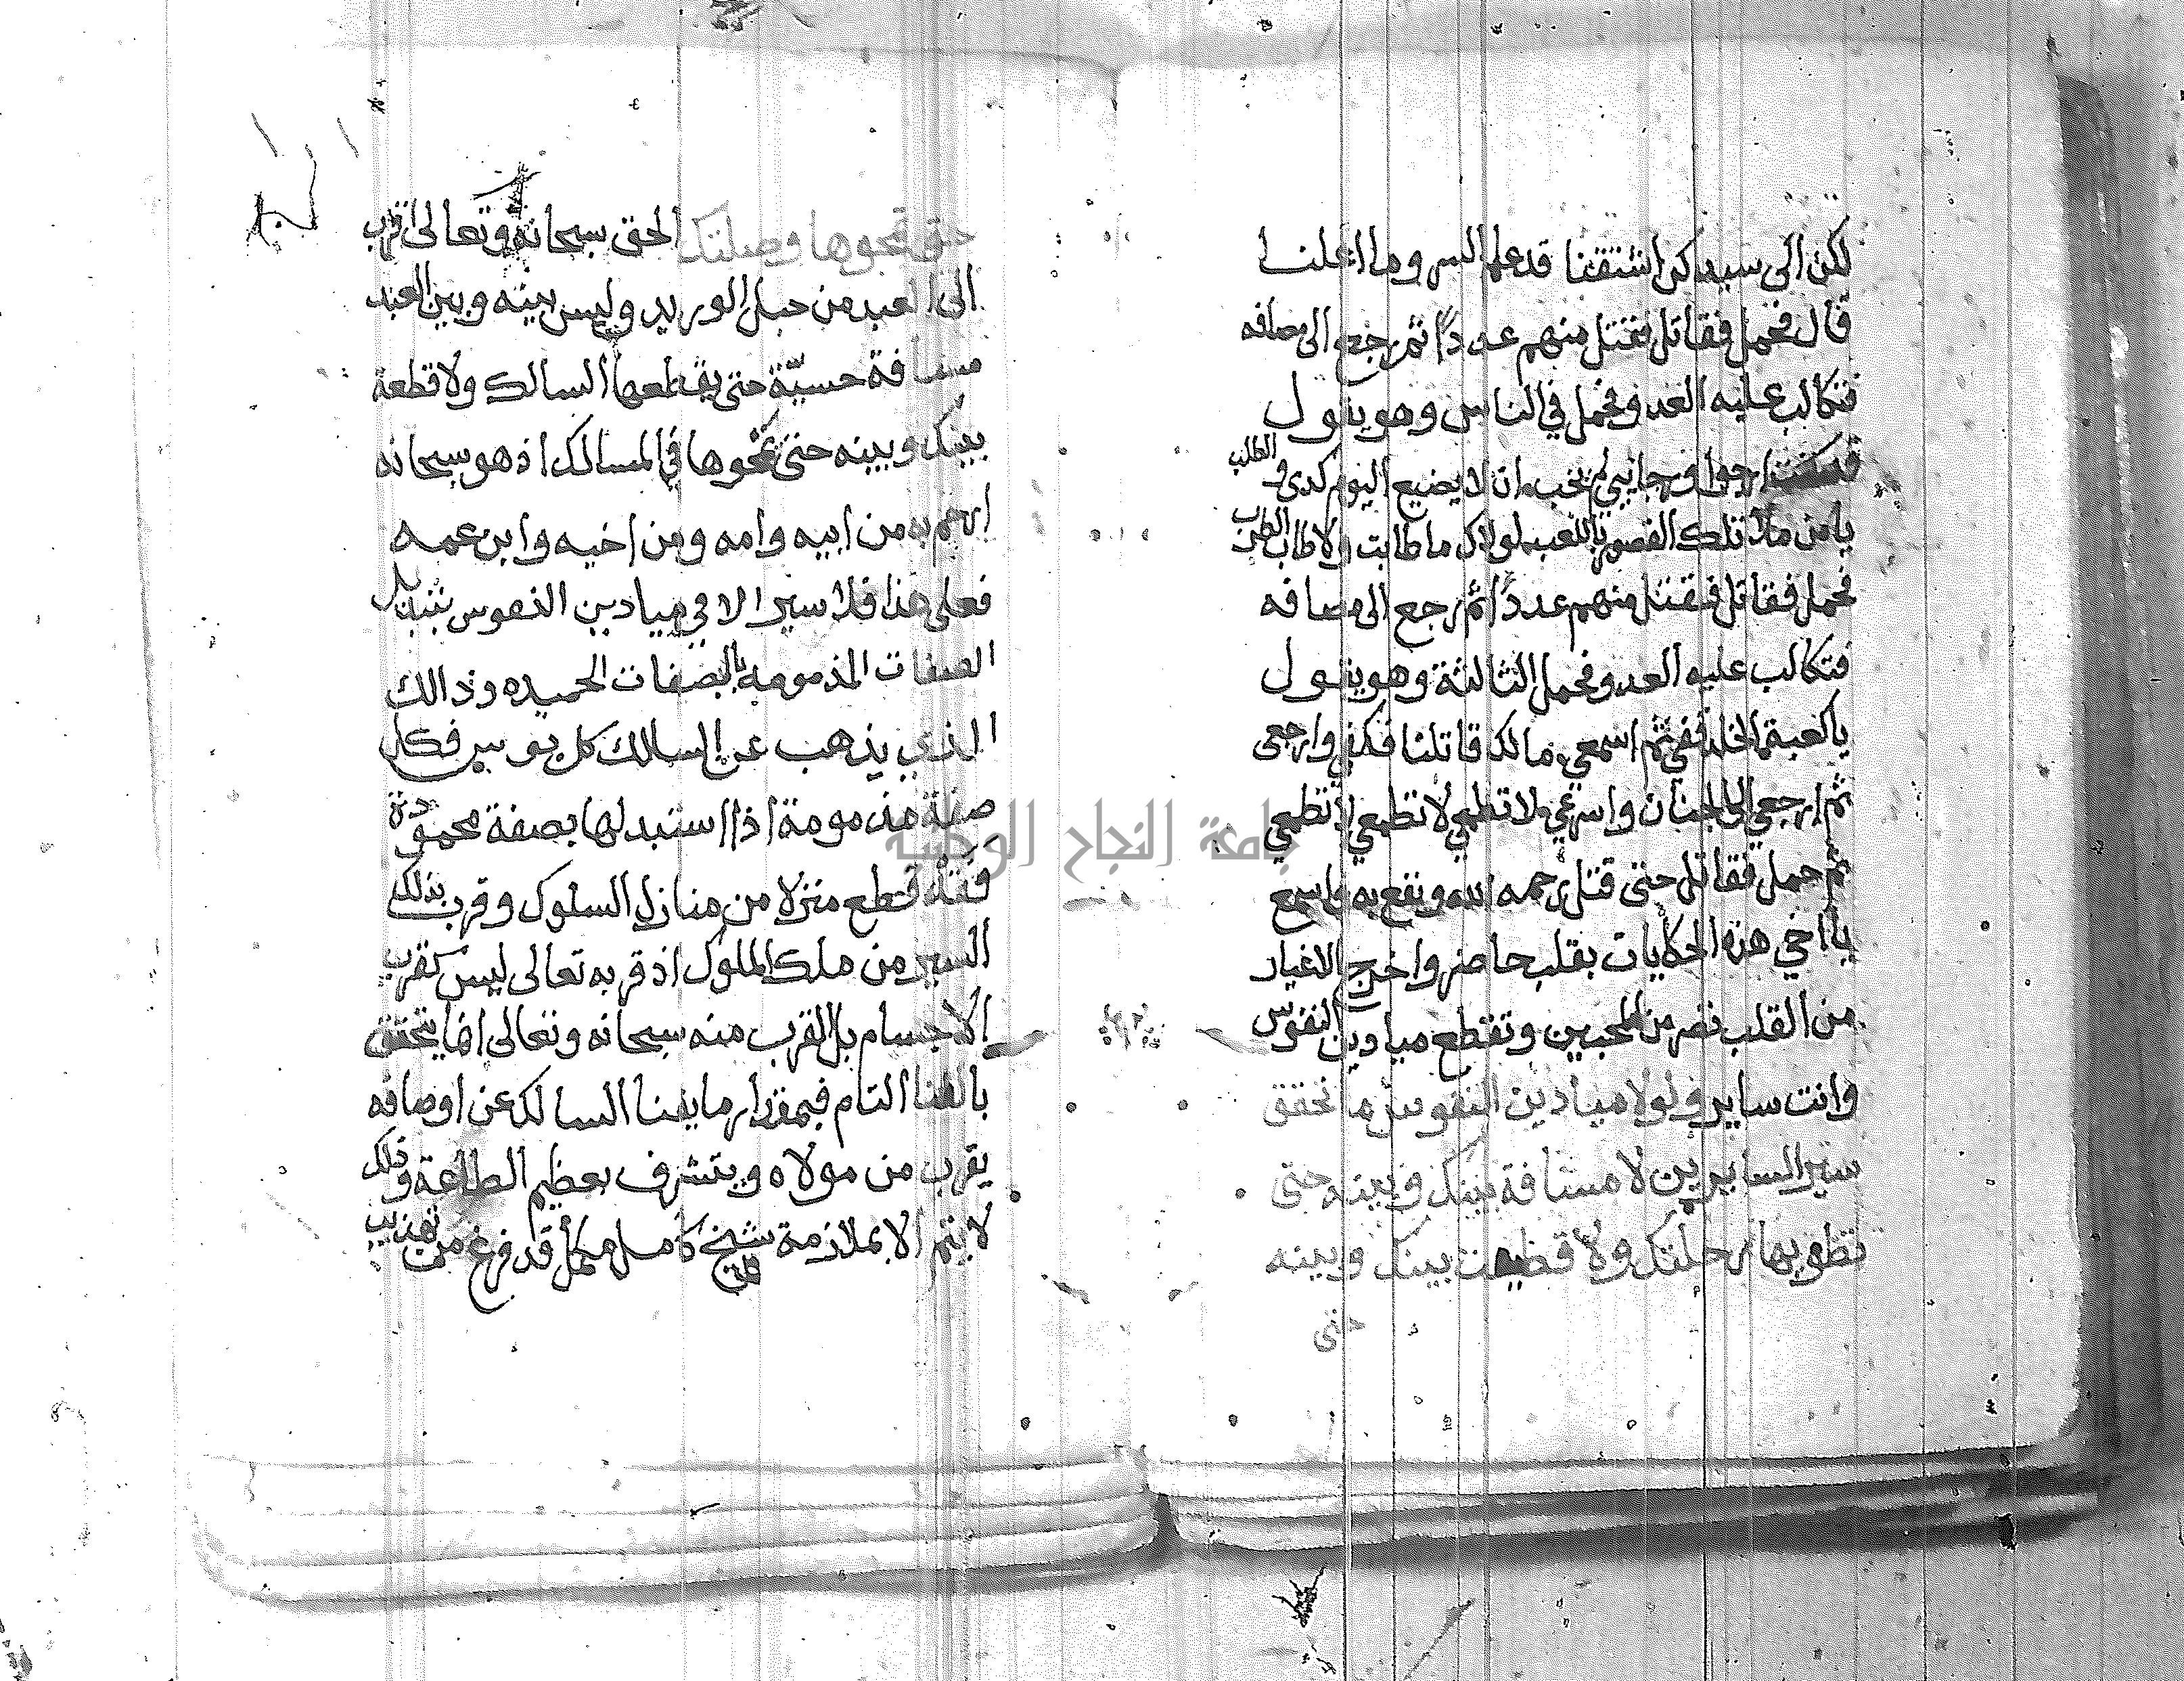 لكن الى سيدكن اشتقنا قد علم السر وما اعلنا
قال فحمل فقاتل فقتل منهم عددًا ثم رجع الى مصافه
فتكالب عليه العدو فحمل في الناس وهو يقول
قد كنت ارجوا ورجايي لم يخب ان لا يضيع اليوم كدي و الطلب
يا من ملا تلك القصور باللعب لولاك ما طابت ولا طاب الطرب
فحمل فقاتل فقتل منهم عددًا ثم رجع الى مصافه
فتكالب عليه العدو فحمل الثالثة وهو يقول
يا لعبة الخلد قفي ثم اسمعي مالك قاتلنا فكفي وارجعي
ثم ارجعي الى الجنان واسرعي لا تطمعي لا تطمعي لا تطمعي
ثم حمل فقاتل حتى قتل رحمه الله ونفع به واسمع
يا اخي هذه الحكايات بقلب حاضر واخرج الاغيار
من القلب تصر من المحبين وتقطع ميادين النفوس
وانت ساير ولولا ميادين النفوس ما تحقق
سير السايرين لا مسافة بينك وبينه حتى
تطويها رحلتك ولا قطيعت بينك وبينه
حتى
حتى تمحوها وصلتك الحق سبحانه وتعالى اقرب
الى العبد من حبل الوريد وليس بينه وبين العبد
مسافة حسيّة حتى يقطعها السالك ولا قطعة
بينك وبينه حتى تمحوها في المسالك اذ هو سبحانه
ارحم به من ابيه وامه ومن اخيه وابن عمه
فعلى هذا فلا سير الا في ميادين النفوس بتبديل
الصفات المذمومة بالصفات الحميده وذالك
الذي يذهب عن السالك كل بوس فكل
صفة مذمومة اذا استبدلها بصفة محمودة
فقد قطع منزلا من منازل السلوك وقرب بذلك
السير من ملك الملوك اذ قربه تعالى ليس كقرب
الاجسام بل القرب منه سبحانه وتعالى انما يتحقق
بالفنا التام فبمقدار ما يفنا السالك عن اوصافه
يقرب من مولاه ويتشرف بعظيم الطاعة وذلك
لا يتم الا بملازمة شيخ كامل مكمل قد فرغ من تهذيب
جامعة النجاح الوطنية